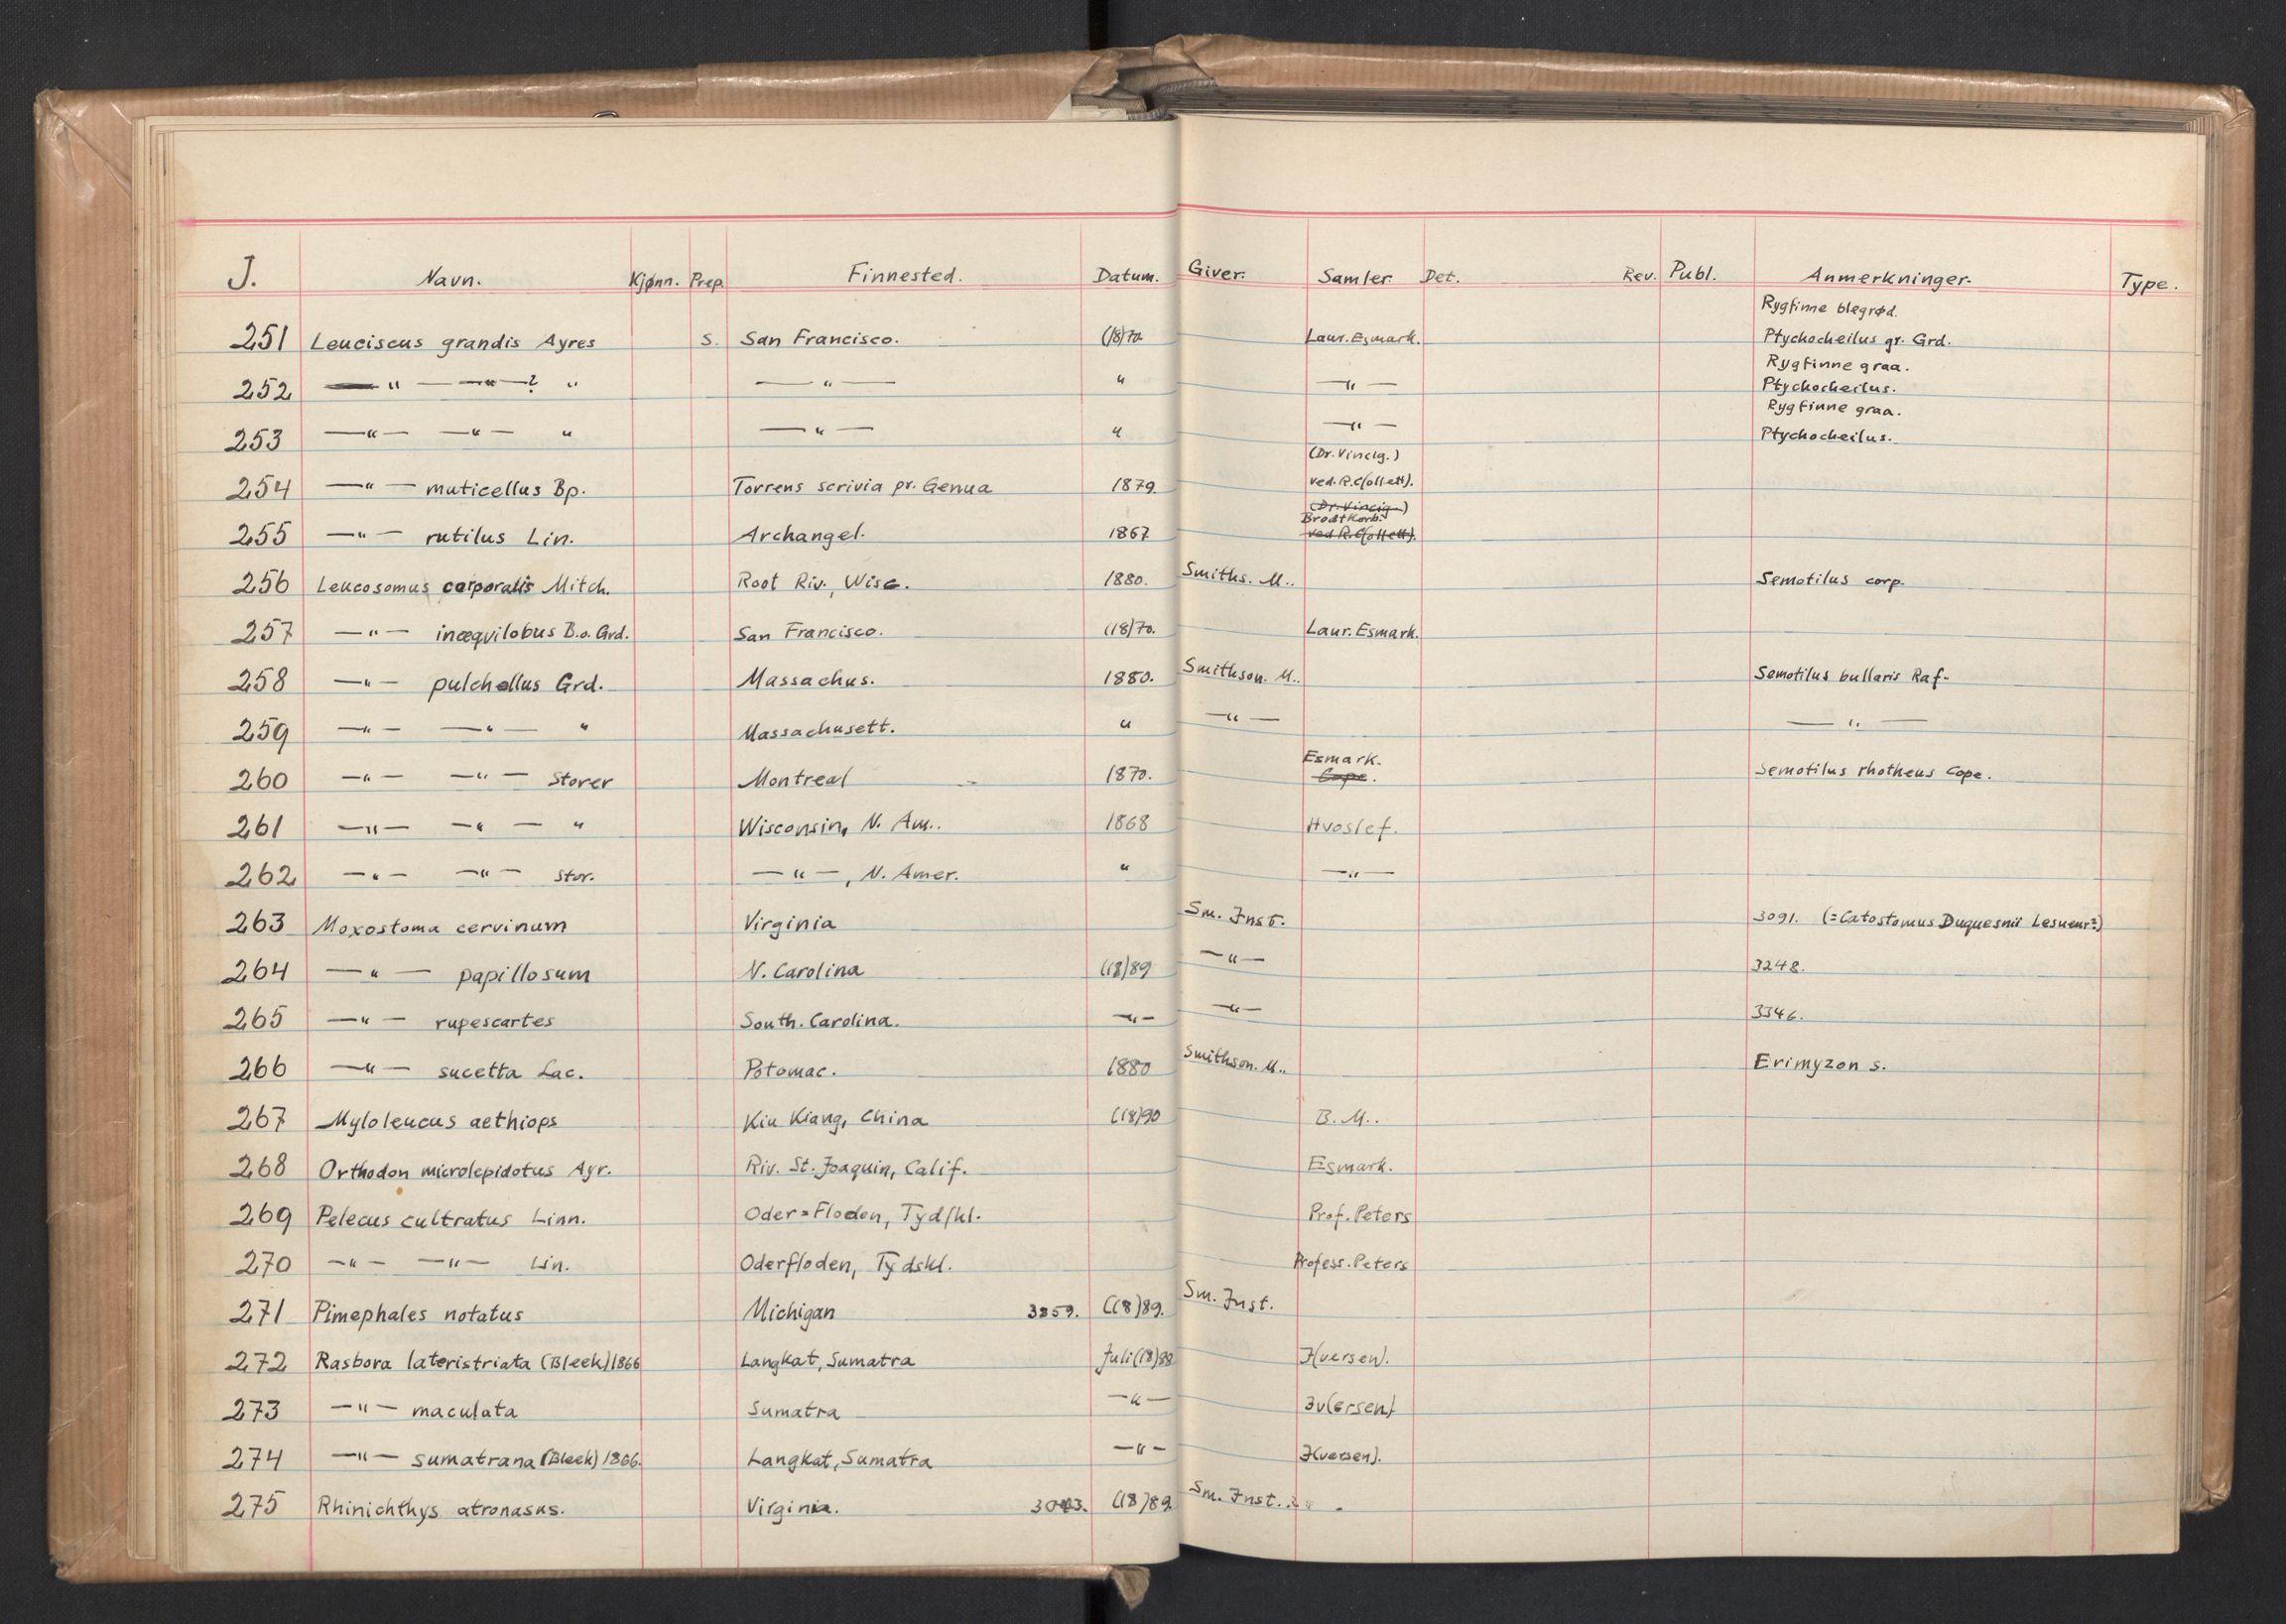 J. Navn. Kjønn. Prep. Finnested. Datum. Giver. Samler. Det. Rev. Publ. Anmerkninger. Type.
Rygfinne blegrød.
251 Leuciscus grandis Ayres S. San Francisco. (18)70. Laur. Esmark. Ptychocheilus gr. Grd.
Rygfinne graa.
252 —"— —"—? " —"— " —"— Ptychocheilus.
Rygfinne graa.
253 —"— —"— " —"— " —"— Ptychocheilus.
(Dr. Vincig.)
254 —"— muticellus Bp. Torrens scrivia pr. Genua 1879. ved. R.C(ollett).
(Dr. Vincig.)
Brodtkorb.
255 —"— rutilus Lin. Archangel. 1867 ved R.C(ollett).
256 Leucosomus corporalis Mitch. Root Riv., Wisc. 1880. Smiths. M.. Semotilus corp.
257 —"— inæqvilobus B.o. Grd. San Francisco. (18)70. Laur. Esmark.
258 —"— pulchellus Grd. Massachus. 1880. Smithson. M.. Semotilus bullaris Raf.
259 —"— —"— " Massachusett. " —"— —"—
Esmark.
260 —"— —"— Storer Montreal 1870. Cope. Semotilus rhotheus Cope.
261 —"— —"— " Wisconsin, N. Am.. 1868 Hvoslef.
262 —"— —"— Stor. —"—, N. Amer. " —"—
263 Moxostoma cervinum Virginia Sm. Inst. 3091. (=Catostomus Duquesnii Lesueur?)
264 —"— papillosum N. Carolina (18)89 —"— 3248.
265 —"— rupescartes South. Carolina. —"— —"— 3346.
266 —"— sucetta Lac. Potomac. 1880 Smithson. M.. Erimyzon s.
267 Myloleucus aethiops Kiu Kiang, China (18)90 B. M..
268 Orthodon microlepidotus Ayr. Riv. St. Joaquin, Calif. Esmark.
269 Pelecus cultratus Linn. Oder=Floden, Tydskl. Prof. Peters
270 —"— —"— Lin. Oderfloden, Tydskl. Profess. Peters
271 Pimephales notatus Michigan 3259. (18)89. Sm. Inst.
272 Rasbora lateristriata (Bleek) 1866 Langkat, Sumatra Juli (18)88 I(versen).
273 —"— maculata Sumatra —"— Iv(ersen)
274 —"— sumatrana (Bleek) 1866. Langkat, Sumatra —"— I(versen).
275 Rhinichthys atronasus. Virginia. (18)89. Sm. Inst..